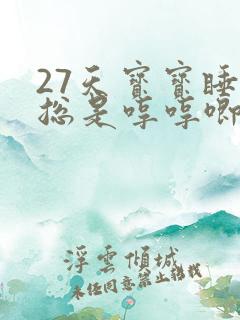 27天宝宝睡
总是哼哼唧
浮云倾城
未经同意禁止转载